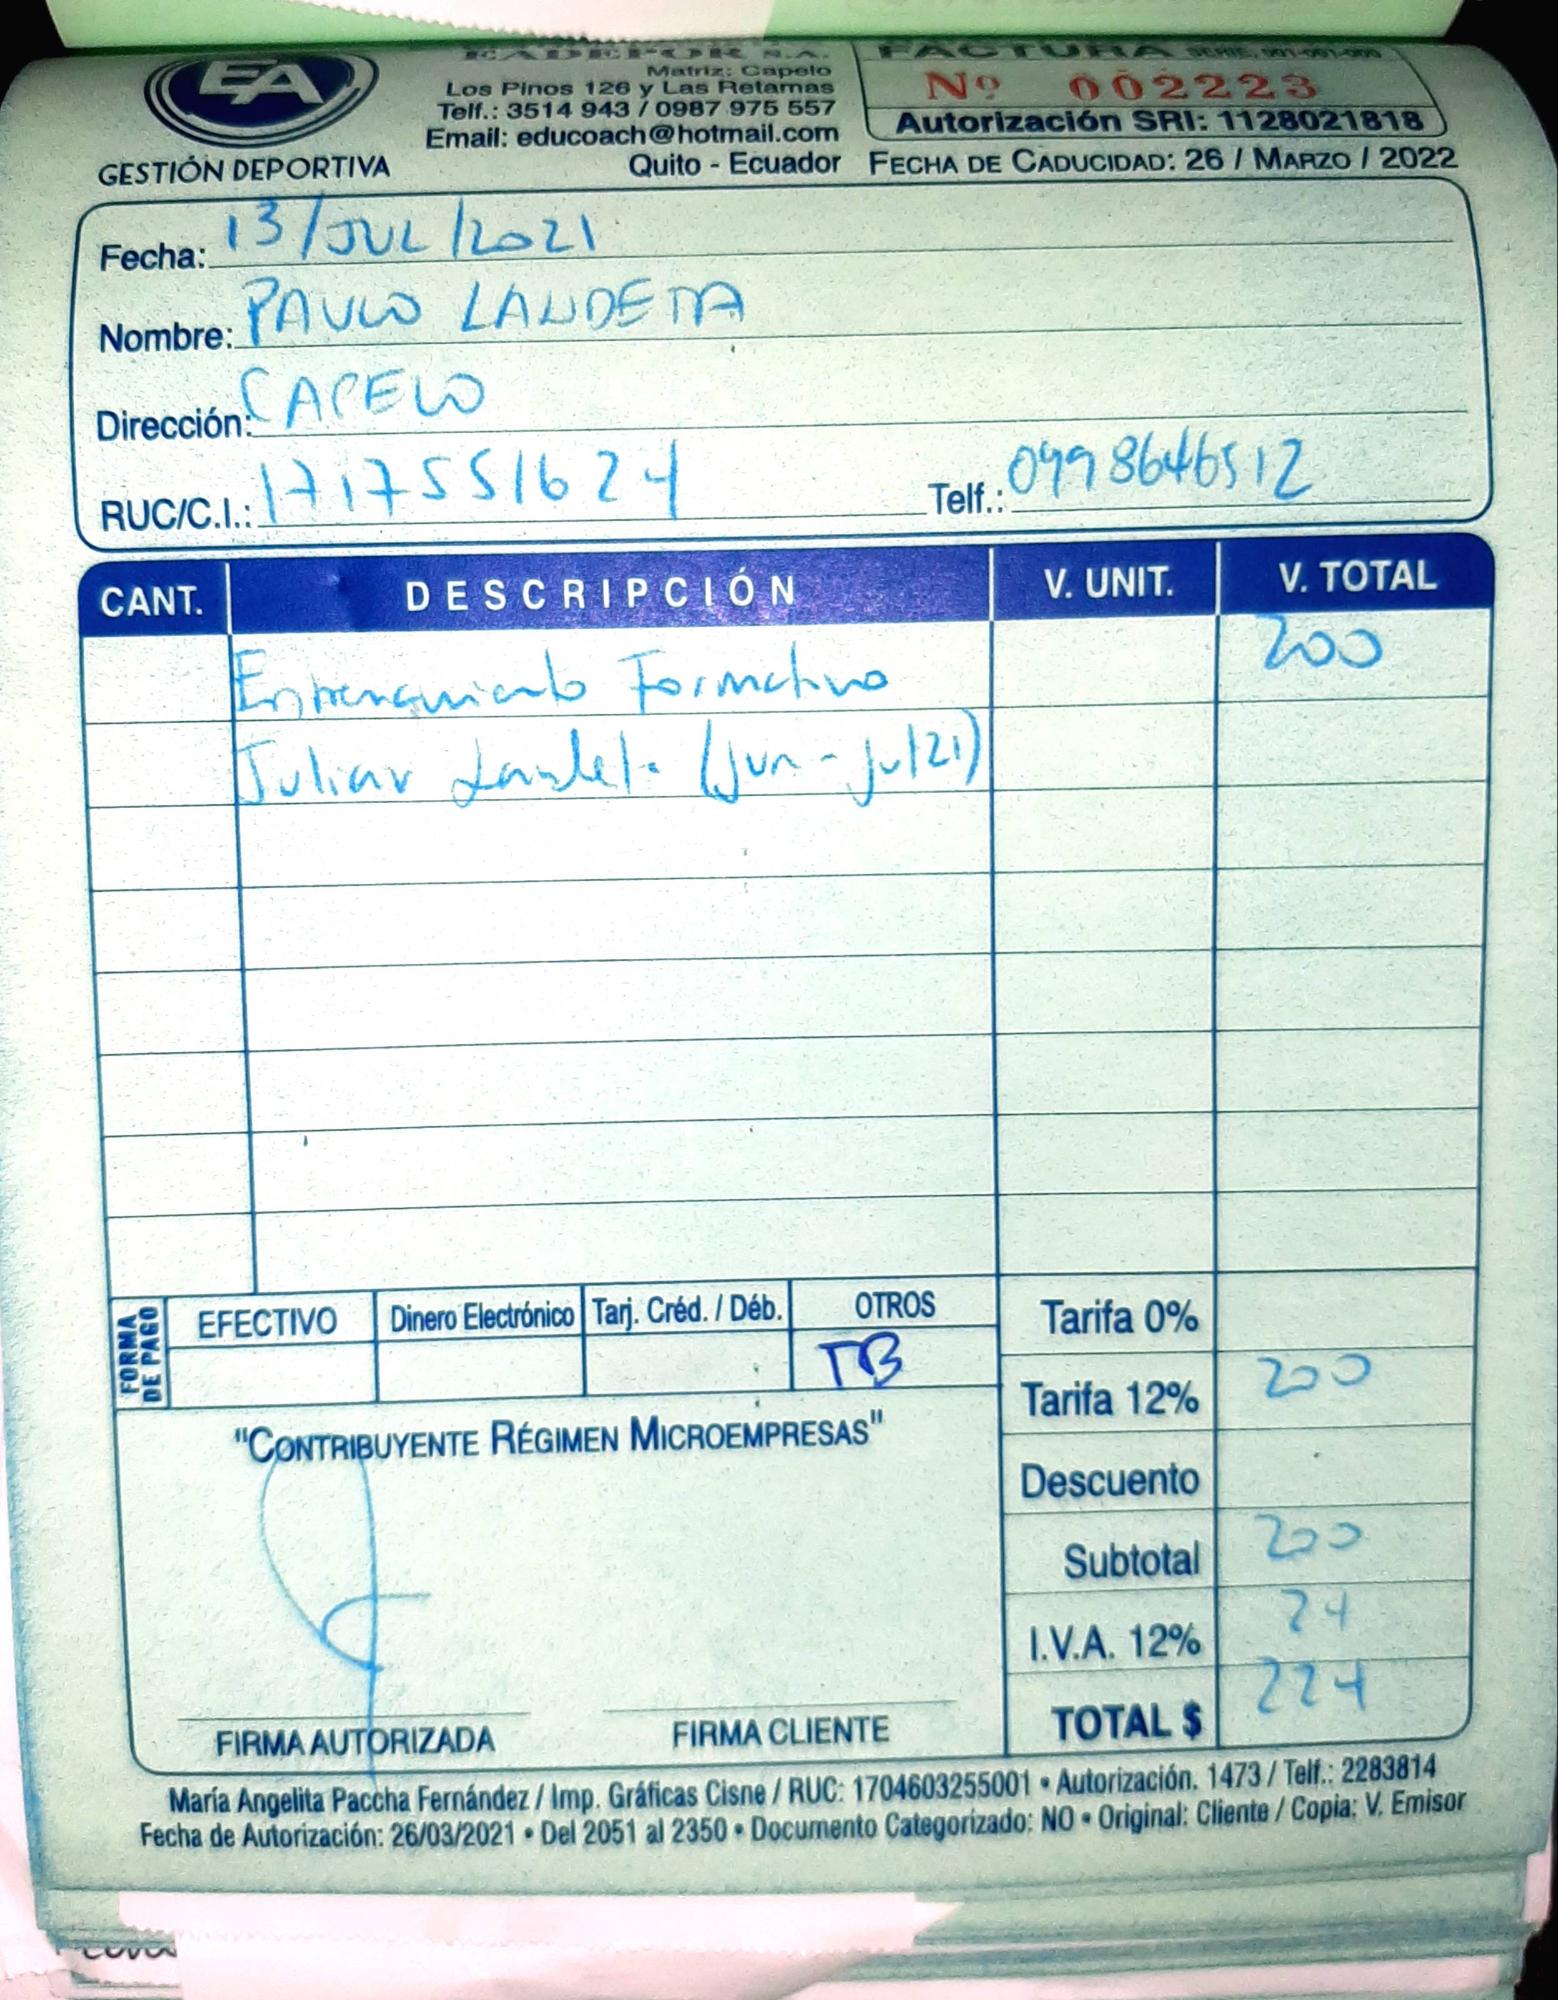 EA
GESTIÓN DEPORTIVA
EADEPOR S.A.
Matriz: Capelo
Los Pinos 126 y Las Retamas
Telf.: 3514 943 / 0987 975 557
Email: educoach@hotmail.com
Quito - Ecuador
FACTURA SERIE. 001-001-000
Nº 002223
Autorización SRI: 1128021818
FECHA DE CADUCIDAD: 26 / MARZO / 2022
Fecha: 13/JUL/2021
Nombre: PAULO LANDETA
Dirección: CAPELO
RUC/C.I.: 1717551624 Telf.: 0998646512
CANT. DESCRIPCIÓN V. UNIT. V. TOTAL
Entrenamiento Formativo 200
Julian Landeta (jun - jul21)
FORMA DE PAGO EFECTIVO Dinero Electrónico Tarj. Créd. / Déb. OTROS
TB
Tarifa 0%
Tarifa 12% 200
Descuento
Subtotal 200
I.V.A. 12% 24
TOTAL $ 224
"CONTRIBUYENTE RÉGIMEN MICROEMPRESAS"
FIRMA AUTORIZADA FIRMA CLIENTE
María Angelita Paccha Fernández / Imp. Gráficas Cisne / RUC: 1704603255001 • Autorización. 1473 / Telf.: 2283814
Fecha de Autorización: 26/03/2021 • Del 2051 al 2350 • Documento Categorizado: NO • Original: Cliente / Copia: V. Emisor